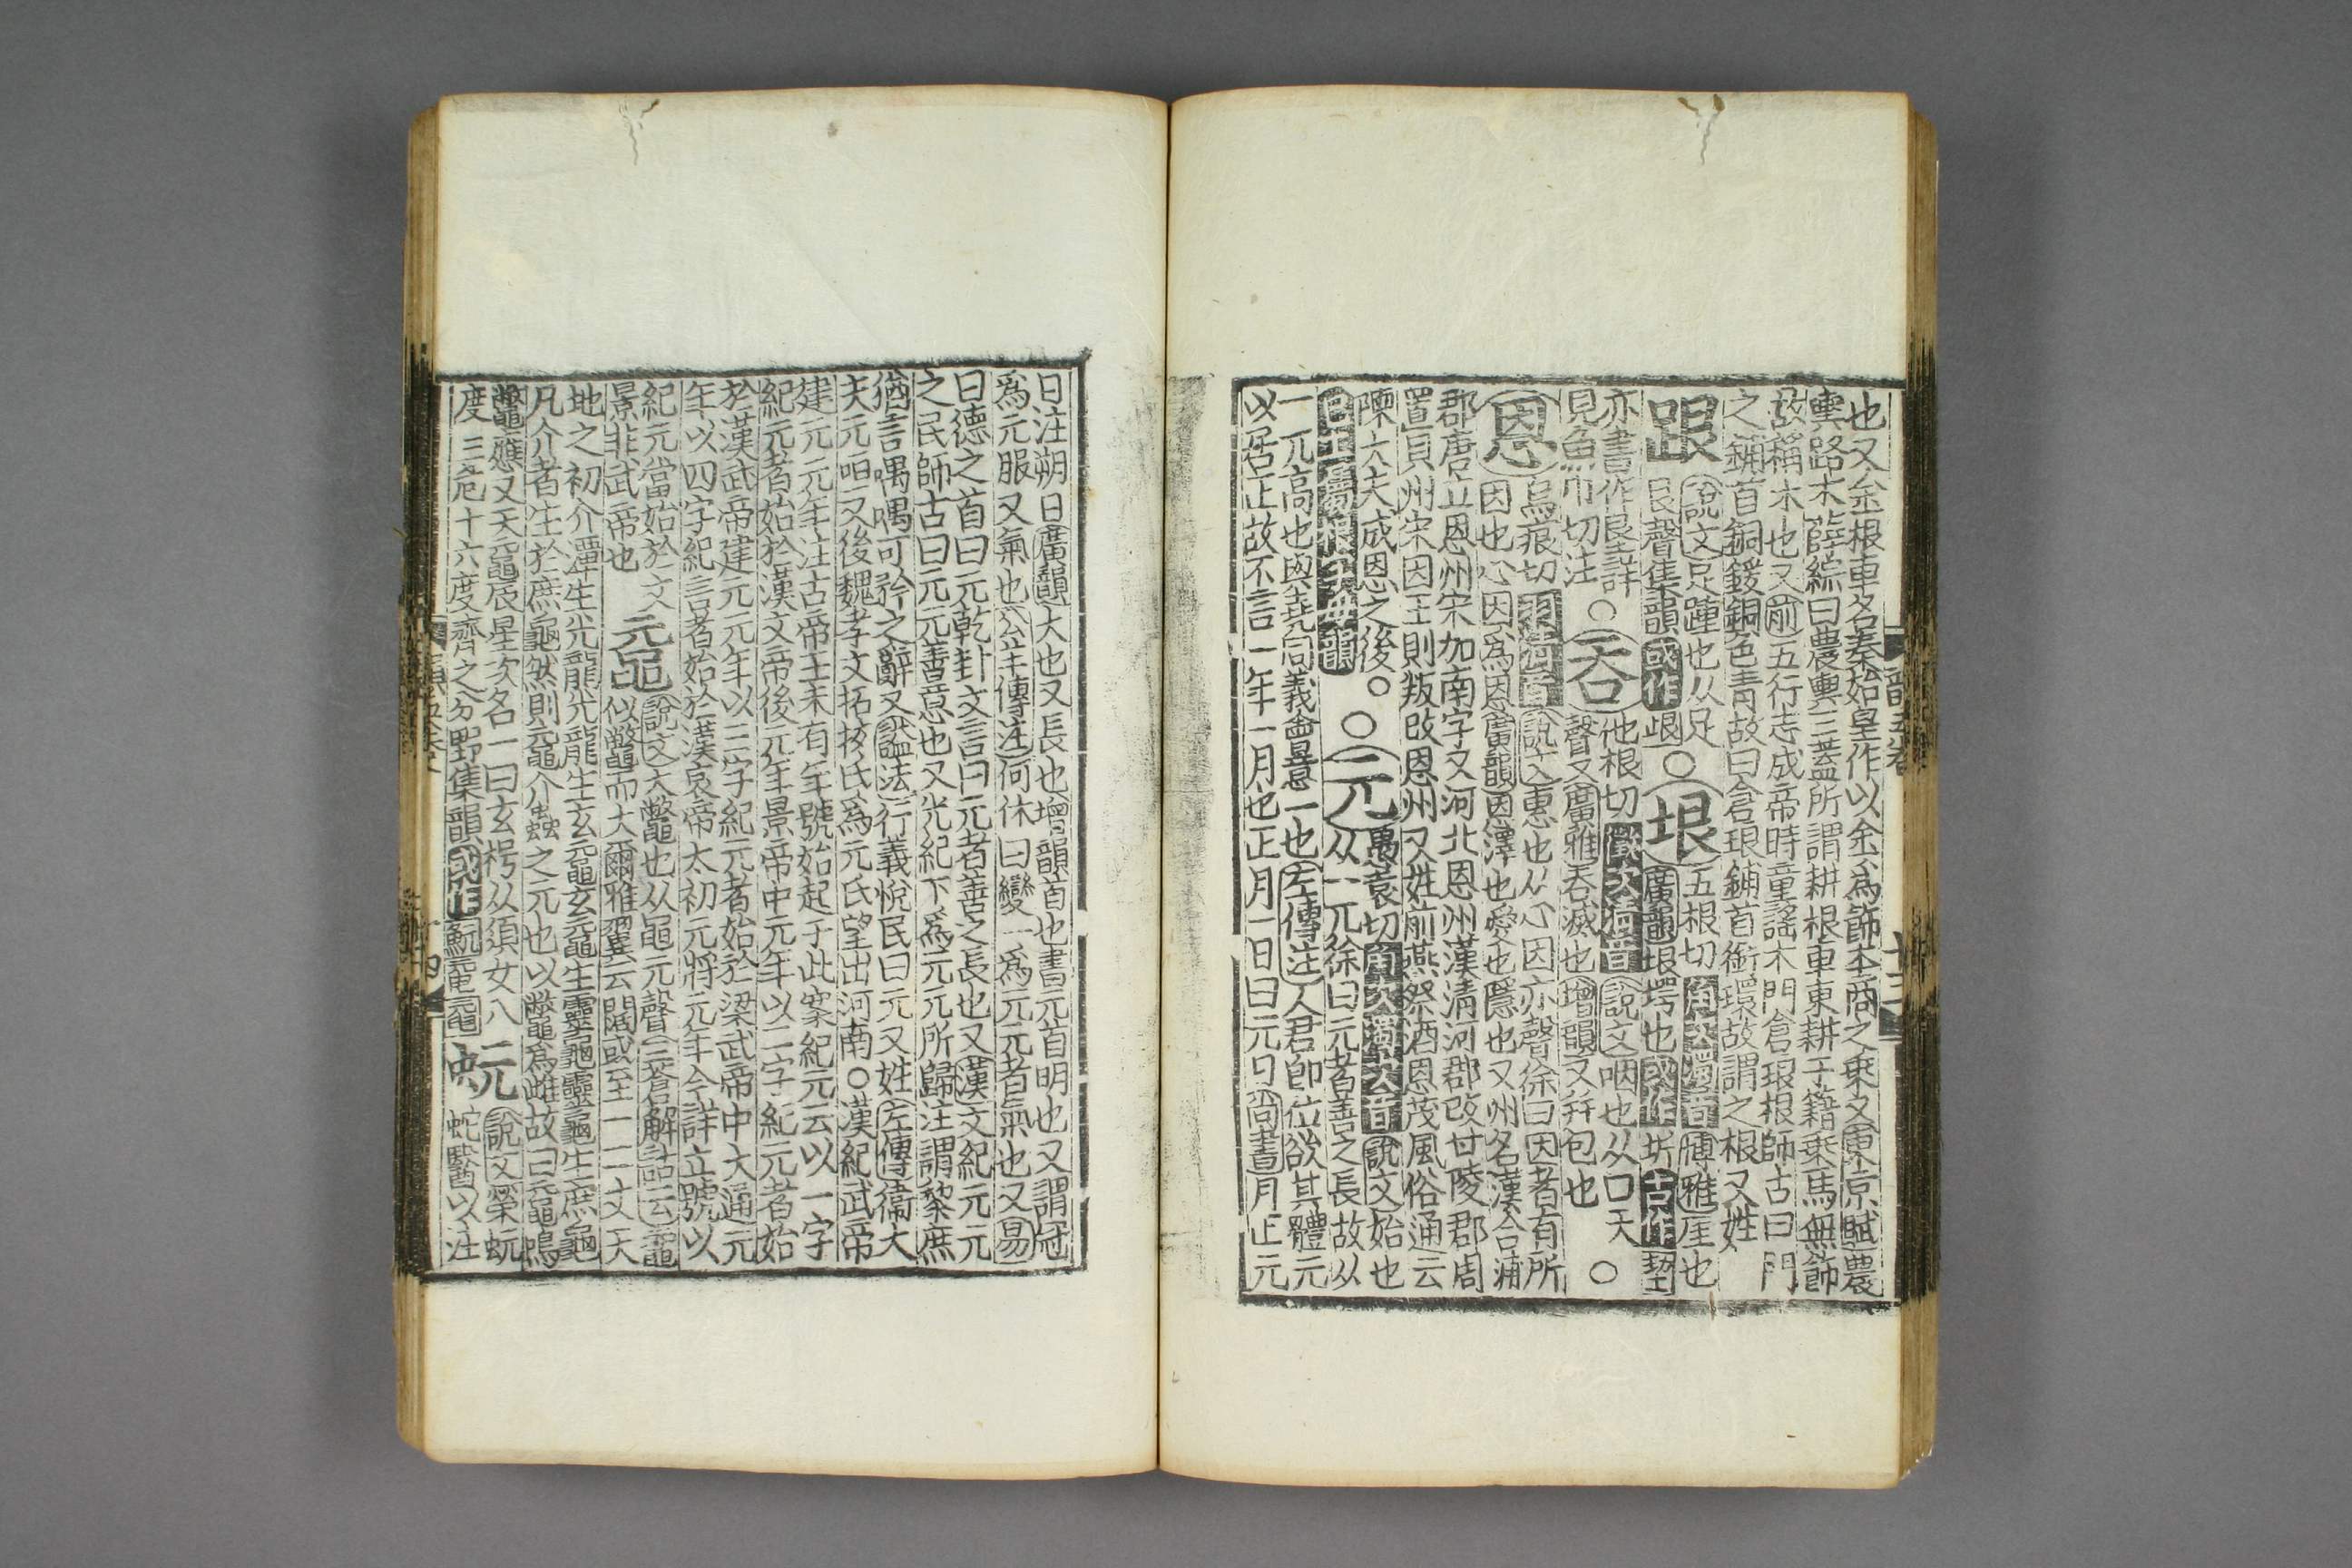 也又金根車名秦始皇作以金爲飾本商之乗又東京賦農
輿路木薛綜曰農輿三蓋所謂耕根車東耕于籍乗馬無飾
故稱木也又前五行志成帝時童謠木門倉琅根師古曰門
之鋪首銅鍰銅色青故曰倉琅鋪首銜環故謂之根又姓
跟
說文足踵也从足
艮聲集韻或作䟘
○垠
五根切角次濁音博雅厓也
廣韻垠堮也或作圻古作
亦書作
見魚巾切注
○吞
他根切徵次清音說文咽也从口天
聲又廣雅吞滅也增韻又幷包也
○
恩
烏痕切羽清音說文惠也从心因亦聲徐曰因者有所
因也心因爲恩廣韻恩澤也愛也隱也又州名漢合浦
郡唐立恩州宋加南字又河北恩州漢清河郡改甘陵郡周
置貝州宋因王則叛改恩州又姓前燕祭酒恩茂風俗通云
陳大夫成恩之後○
○元
愚袁切角次濁次音說文始也
从一兀徐曰元者善之長故从
一兀高也與堯同義
一也左傳注人君即位欲其體元
以居正故不言一年一月也正月一日曰元日尚書月正元
日注朔日廣韻大也又長也增韻首也書元首明也又謂冠
爲元服又氣也公羊傳注何休曰變一爲元元者氣也又易
曰德之首曰元乾卦文言曰元者善之長也又漢文紀元元
之民師古曰元元善意也又光紀下爲元元所歸注謂黎庶
猶言喁喁可矜之辭又諡法行義悅民曰元又姓左傳衞大
夫元咺又後魏孝文拓拔氏爲元氏望出河南○漢紀武帝
建元元年注古帝王未有年號始起于此案紀元云以一字
紀元者始於漢文帝後元年景帝中元年以二字紀元者始
於漢武帝建元元年以三字紀元者始於梁武帝中大通元
年以四字紀言者始於漢哀帝太初元將元年今詳立號以
紀元當始於文
景非武帝也
黿
說文大鼈也从黽元聲三蒼解詁云黿
似鼈而大爾雅翼云闊或至一二丈天
地之初介潭生先龍先龍生玄黿玄黿生靈龜靈龜生庶龜
凡介者生於庶龜然則黿介蟲之元也以鼈爲雌故曰黿鳴
鼈應又天黿辰星次名一曰玄枵从須女八
度三危十六度齊之分野集韻或作魭
蚖
說文榮蚖
蛇醫以注